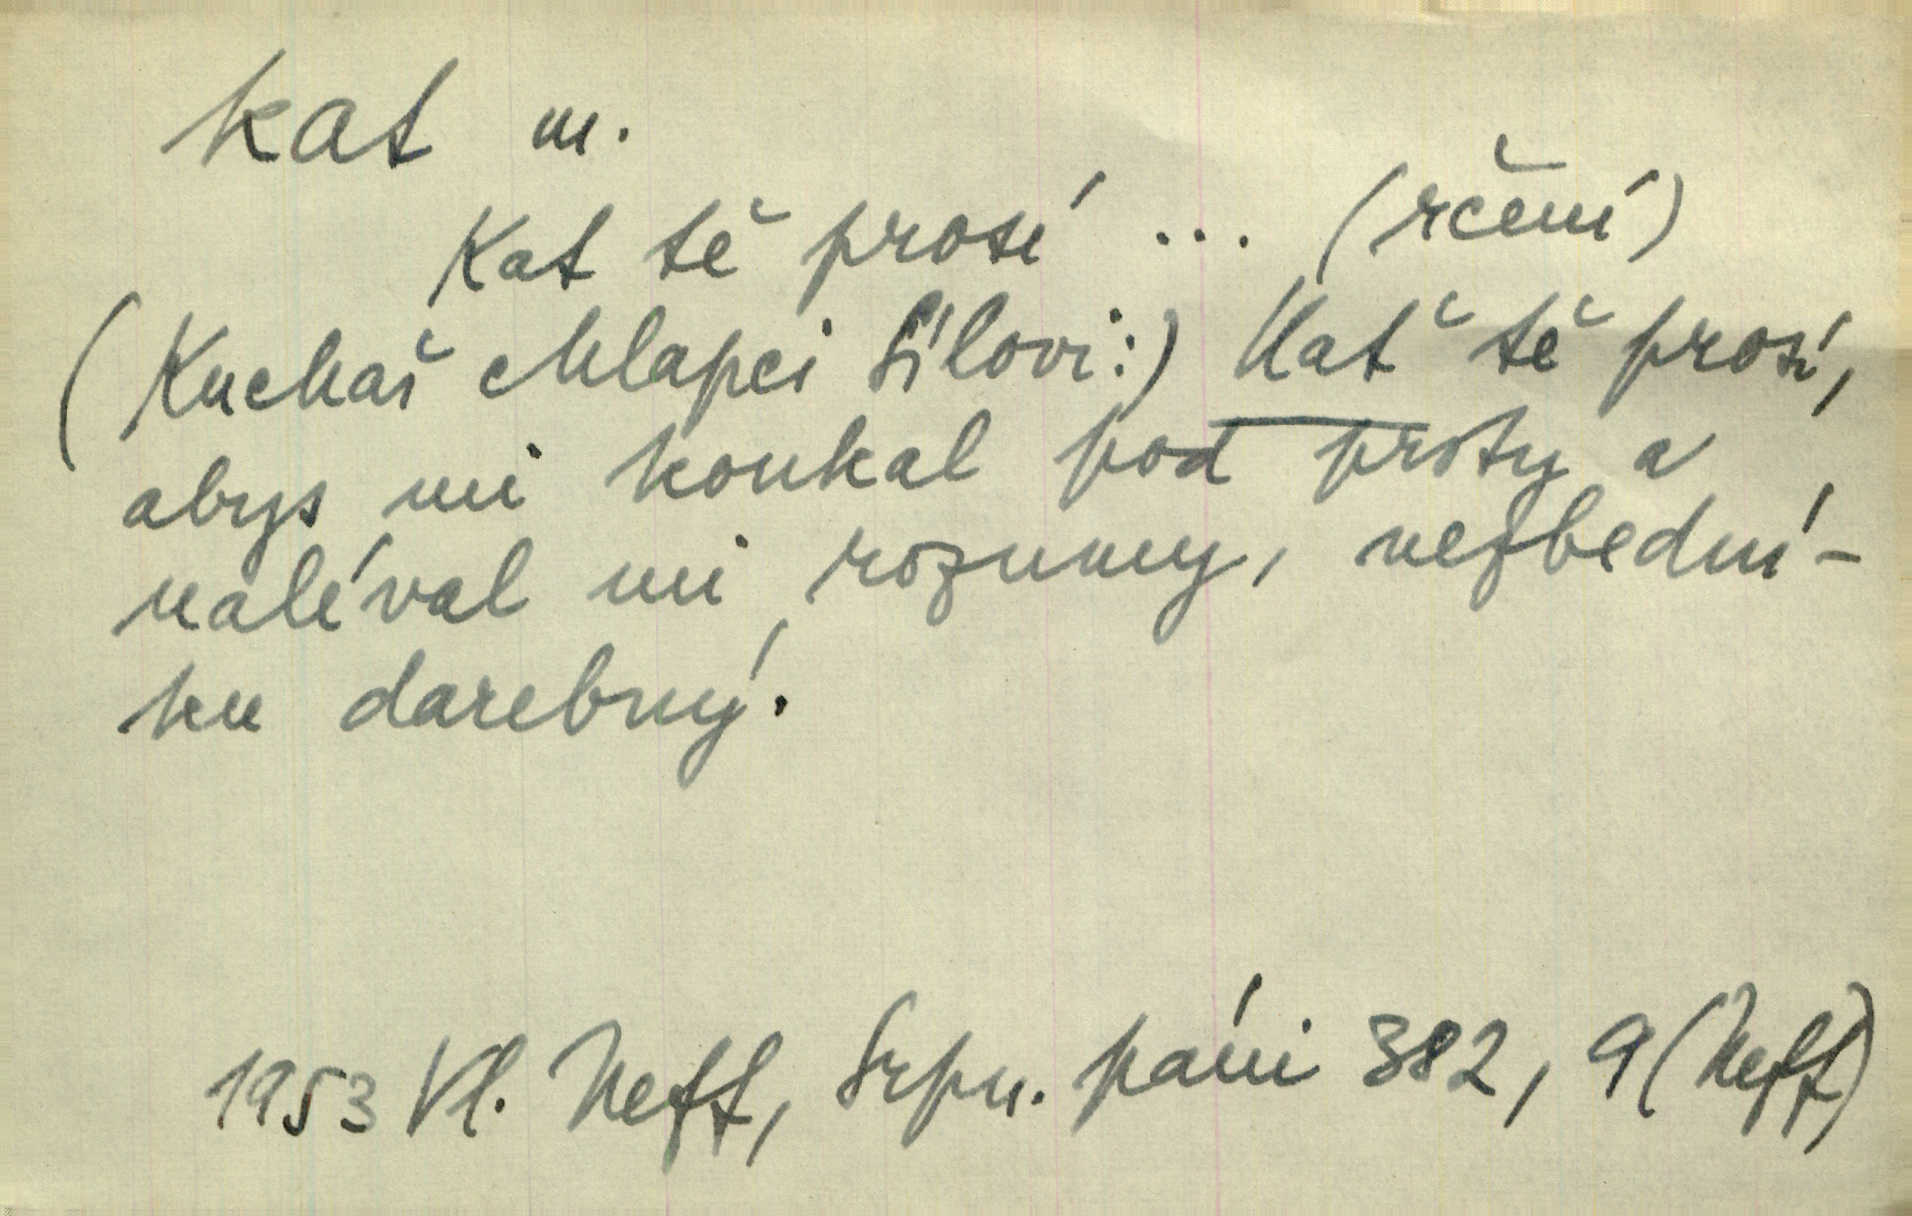 kat m.
Kat tě prosí ... (rčení)
(Kuchař chlapci Sílovi:) Kať tě prosí,
abys mi koukal pod prsty a
naléval mi rozumy, nezbední-
ku darebný.
1953 Vl. Neff, Srpn. páni 382, 9 (Neff)